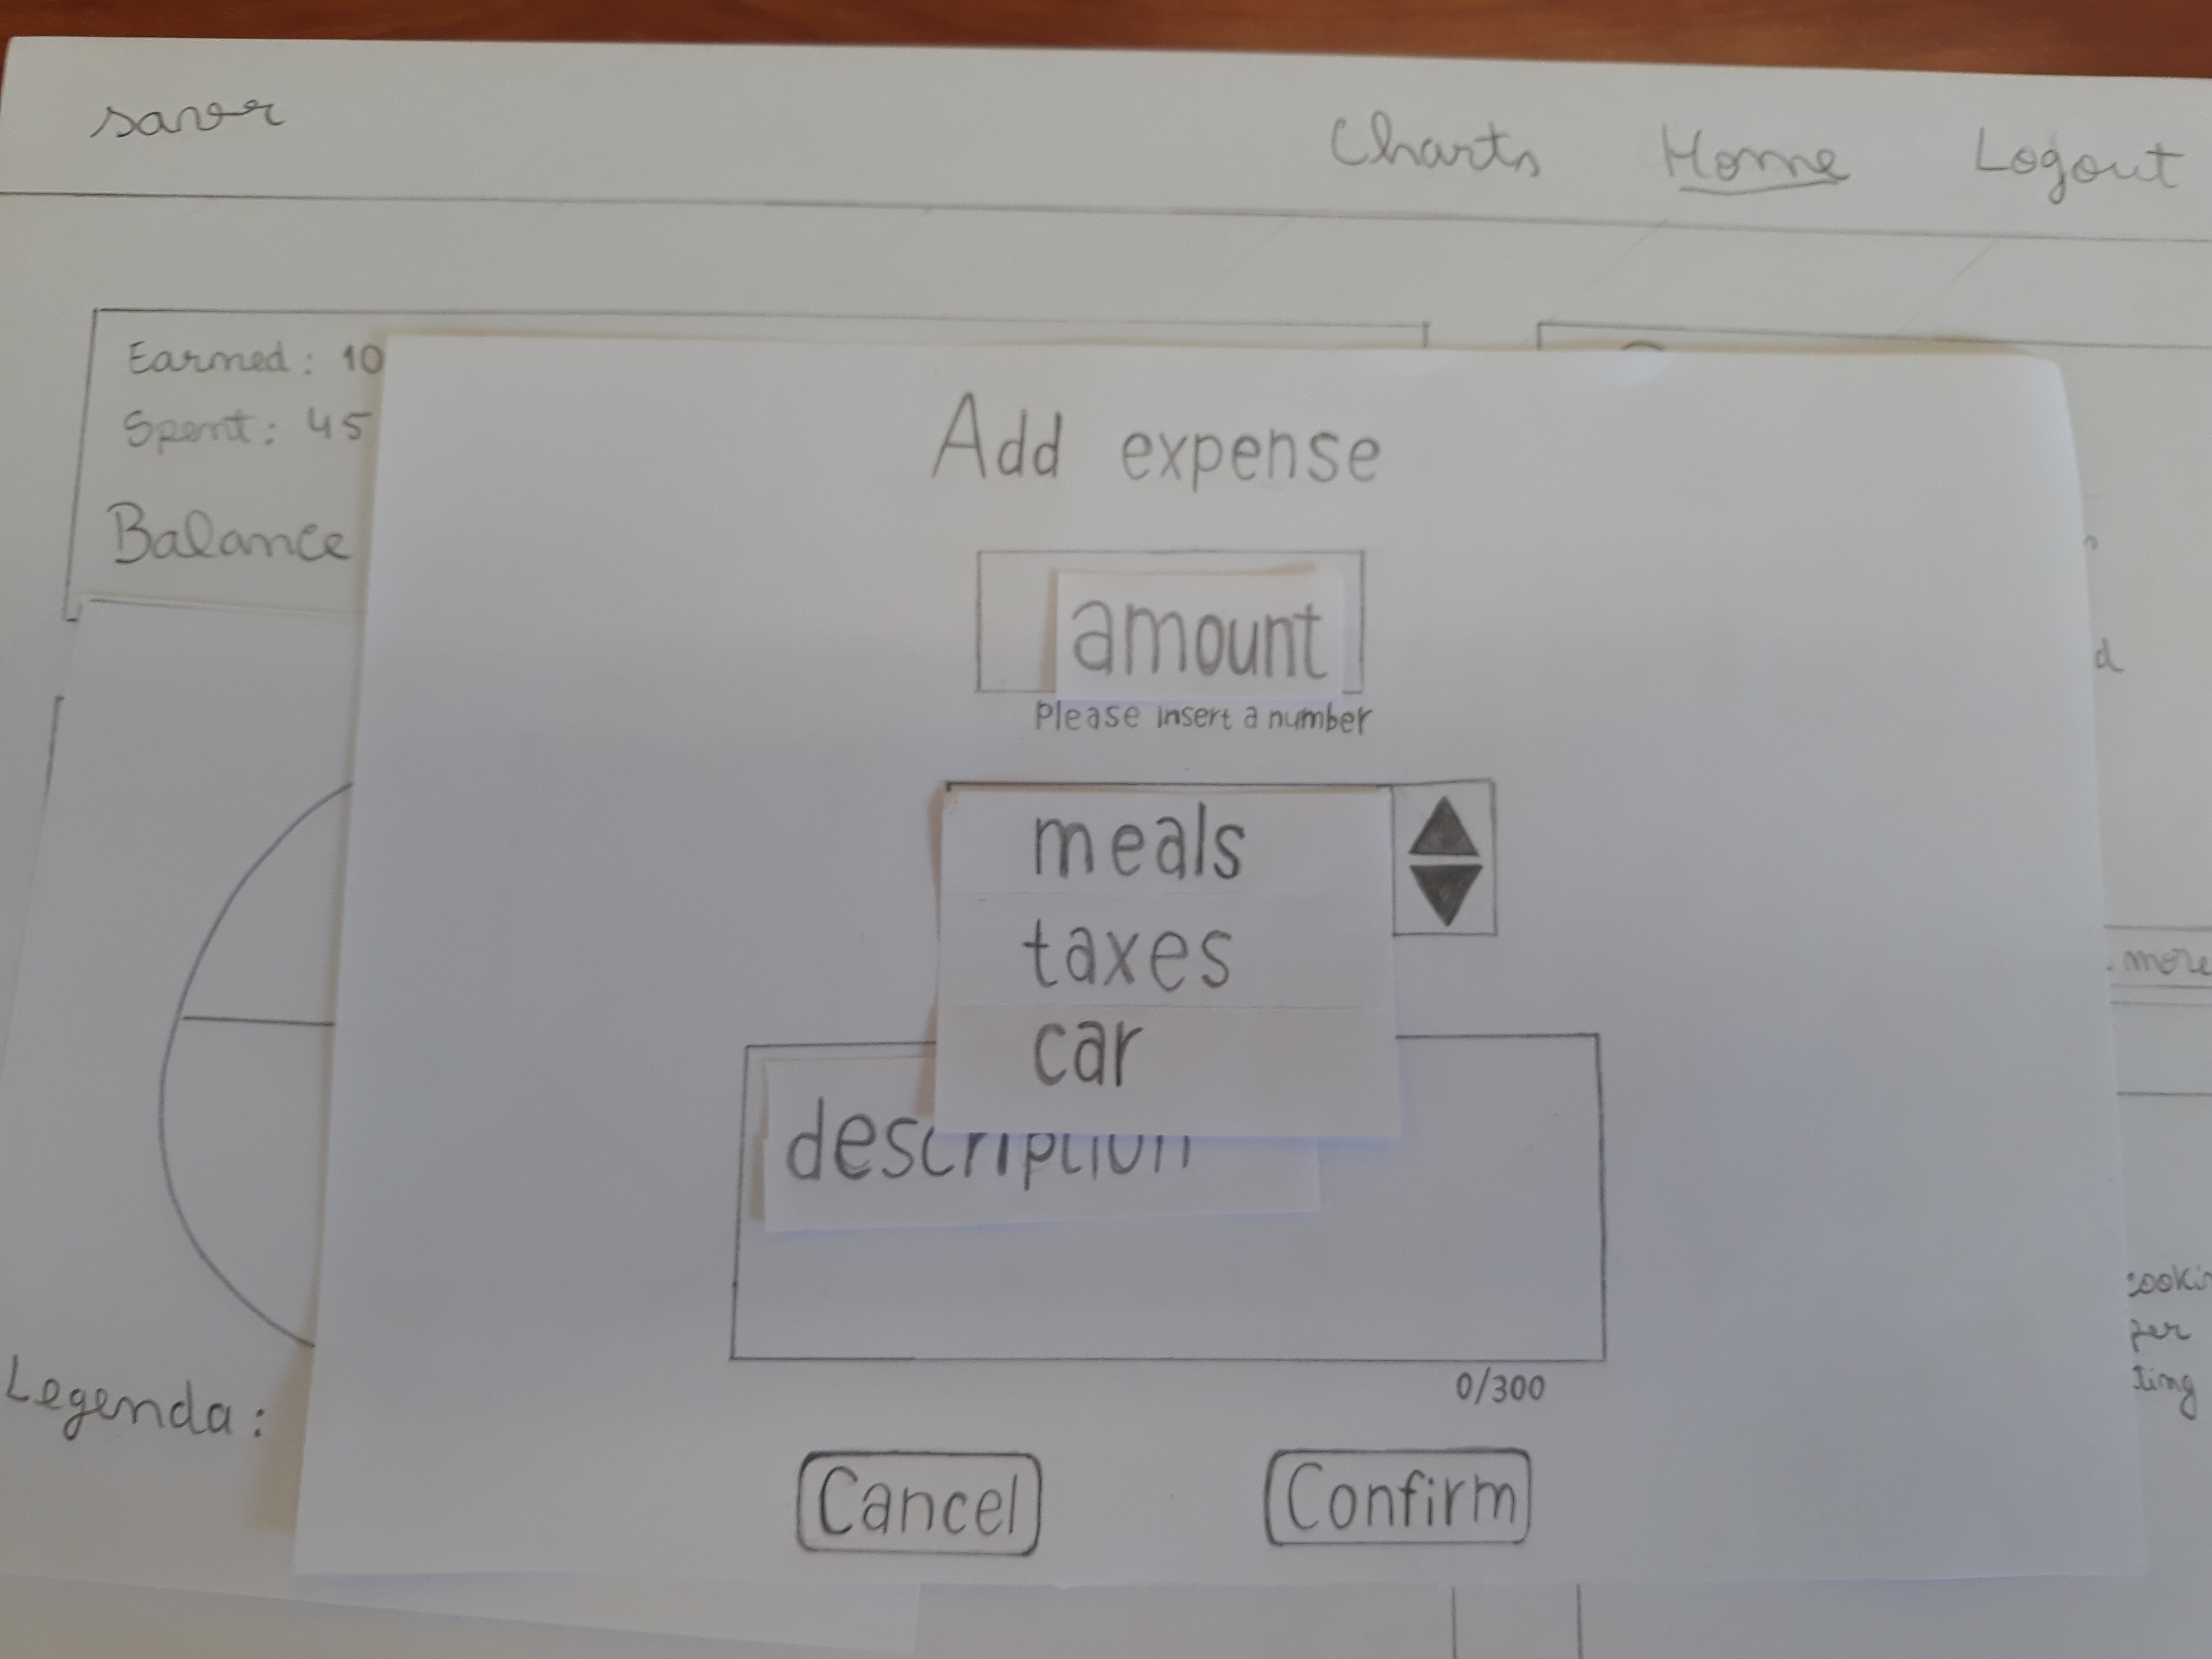 savr
Charts Home Logout
Earned: 10
Spent: 45
Balance
Add expense
amount
Please insert a number
meals
taxes
car
description
0/300
Cancel Confirm
Legenda:
. more
per
ting